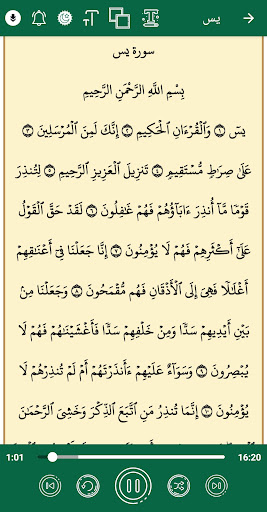 يس
سورة يس
بِسْمِ اللَّهِ الرَّحْمَنِ الرَّحِيمِ
يسٓ ۝١ وَٱلْقُرْءَانِ ٱلْحَكِيمِ ۝٢ إِنَّكَ لَمِنَ ٱلْمُرْسَلِينَ ۝٣
عَلَىٰ صِرَٰطٍ مُّسْتَقِيمٍ ۝٤ تَنزِيلَ ٱلْعَزِيزِ ٱلرَّحِيمِ ۝٥ لِتُنذِرَ
قَوْمًا مَّآ أُنذِرَ ءَابَآؤُهُمْ فَهُمْ غَٰفِلُونَ ۝٦ لَقَدْ حَقَّ ٱلْقَوْلُ
عَلَىٰٓ أَكْثَرِهِمْ فَهُمْ لَا يُؤْمِنُونَ ۝٧ إِنَّا جَعَلْنَا فِىٓ أَعْنَٰقِهِمْ
أَغْلَٰلًا فَهِىَ إِلَى ٱلْأَذْقَانِ فَهُم مُّقْمَحُونَ ۝٨ وَجَعَلْنَا مِنۢ
بَيْنِ أَيْدِيهِمْ سَدًّا وَمِنْ خَلْفِهِمْ سَدًّا فَأَغْشَيْنَٰهُمْ فَهُمْ لَا
يُبْصِرُونَ ۝٩ وَسَوَآءٌ عَلَيْهِمْ ءَأَنذَرْتَهُمْ أَمْ لَمْ تُنذِرْهُمْ لَا
يُؤْمِنُونَ ۝١٠ إِنَّمَا تُنذِرُ مَنِ ٱتَّبَعَ ٱلذِّكْرَ وَخَشِىَ ٱلرَّحْمَٰنَ
1:01 16:20